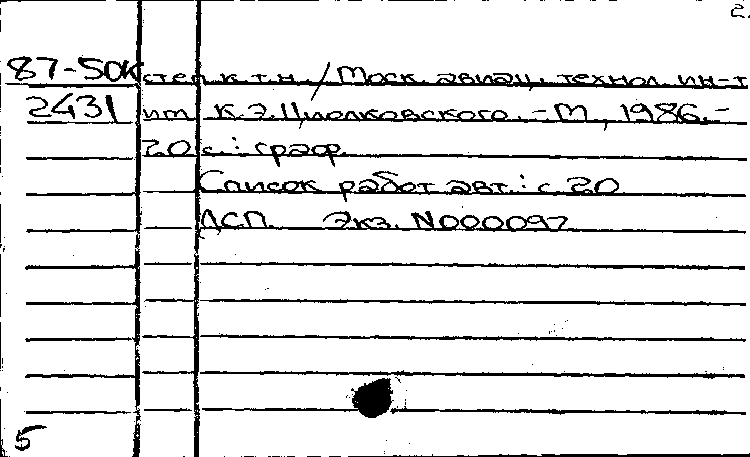 2.
87-50к степ. к.т.н. / Моск. авиац. технол. ин-т
2431 им. К.Э.Циолковского. - М., 1986. -
20 с.: граф.
Список работ авт.: с 20
ДСП. Экз. N000097
5